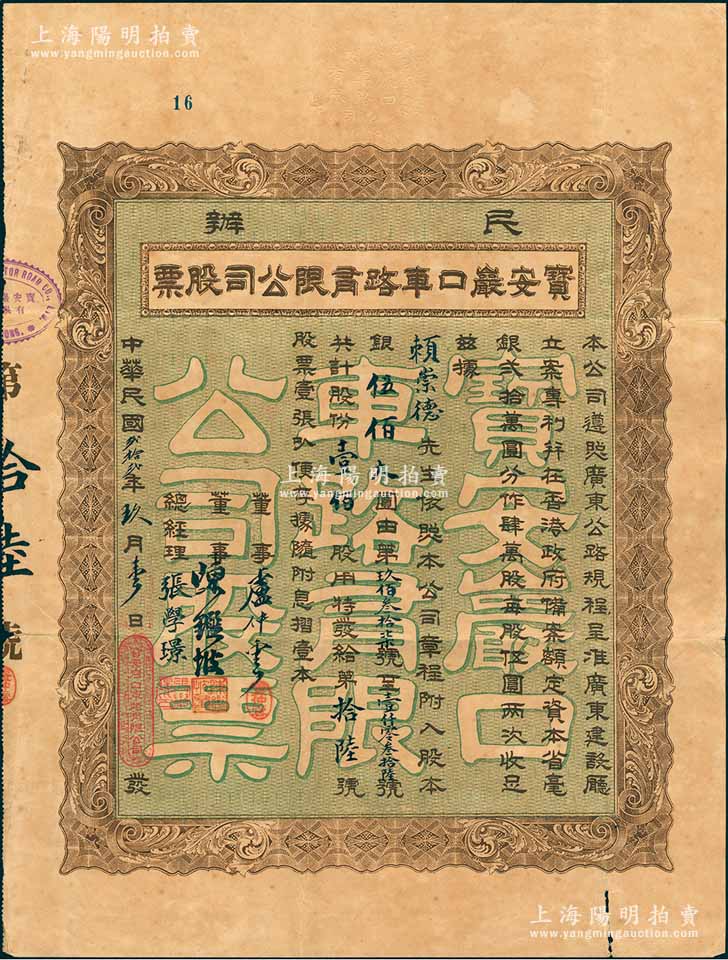 上海陽明拍賣
www.yangmingauction.com
16
民辦
寶安巖口車路有限公司股票
本公司遵照廣東公路規程呈准廣東建設廳
立案專利并在香港政府備案額定資本省毫
銀弍拾萬圓分作肆萬股每股伍圓兩次收足
茲據
賴崇德先生依照本公司章程附入股本
銀伍佰圓由第玖佰叁拾柒號至壹仟零叁拾陸號
共計股份壹佰股用特發給第拾陸號
股票壹張以便手據隨附息摺壹本
董事盧仲雲
董事
總經理張學璟
中華民國弍拾弍年玖月壹日發
寶安巖口車路有限公司股票
第拾陸號
上海陽明拍賣
www.yangmingauction.com
上海陽明拍賣
www.yangmingauction.com